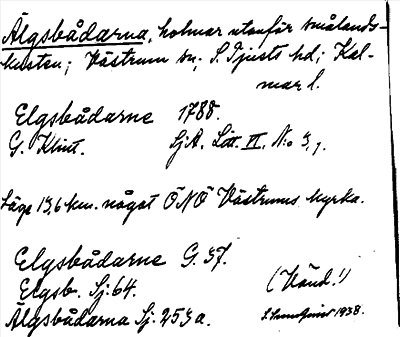 Älgsbådarna, holmar utanför smålands-
kusten; Västrum sn; S. Tjusts hd; Kal-
mar l.
Elgsbådarne 1788.
G. Klint. SjA. Litt. VI. No 3,1.
Läge 13,6 km. något ÖNÖ Västrums kyrka.
Elgsbådarne G. 37.
Elgsb. Sj: 64. (Vänd!)
Älgsbådarna Sj: 253 a. 1938.